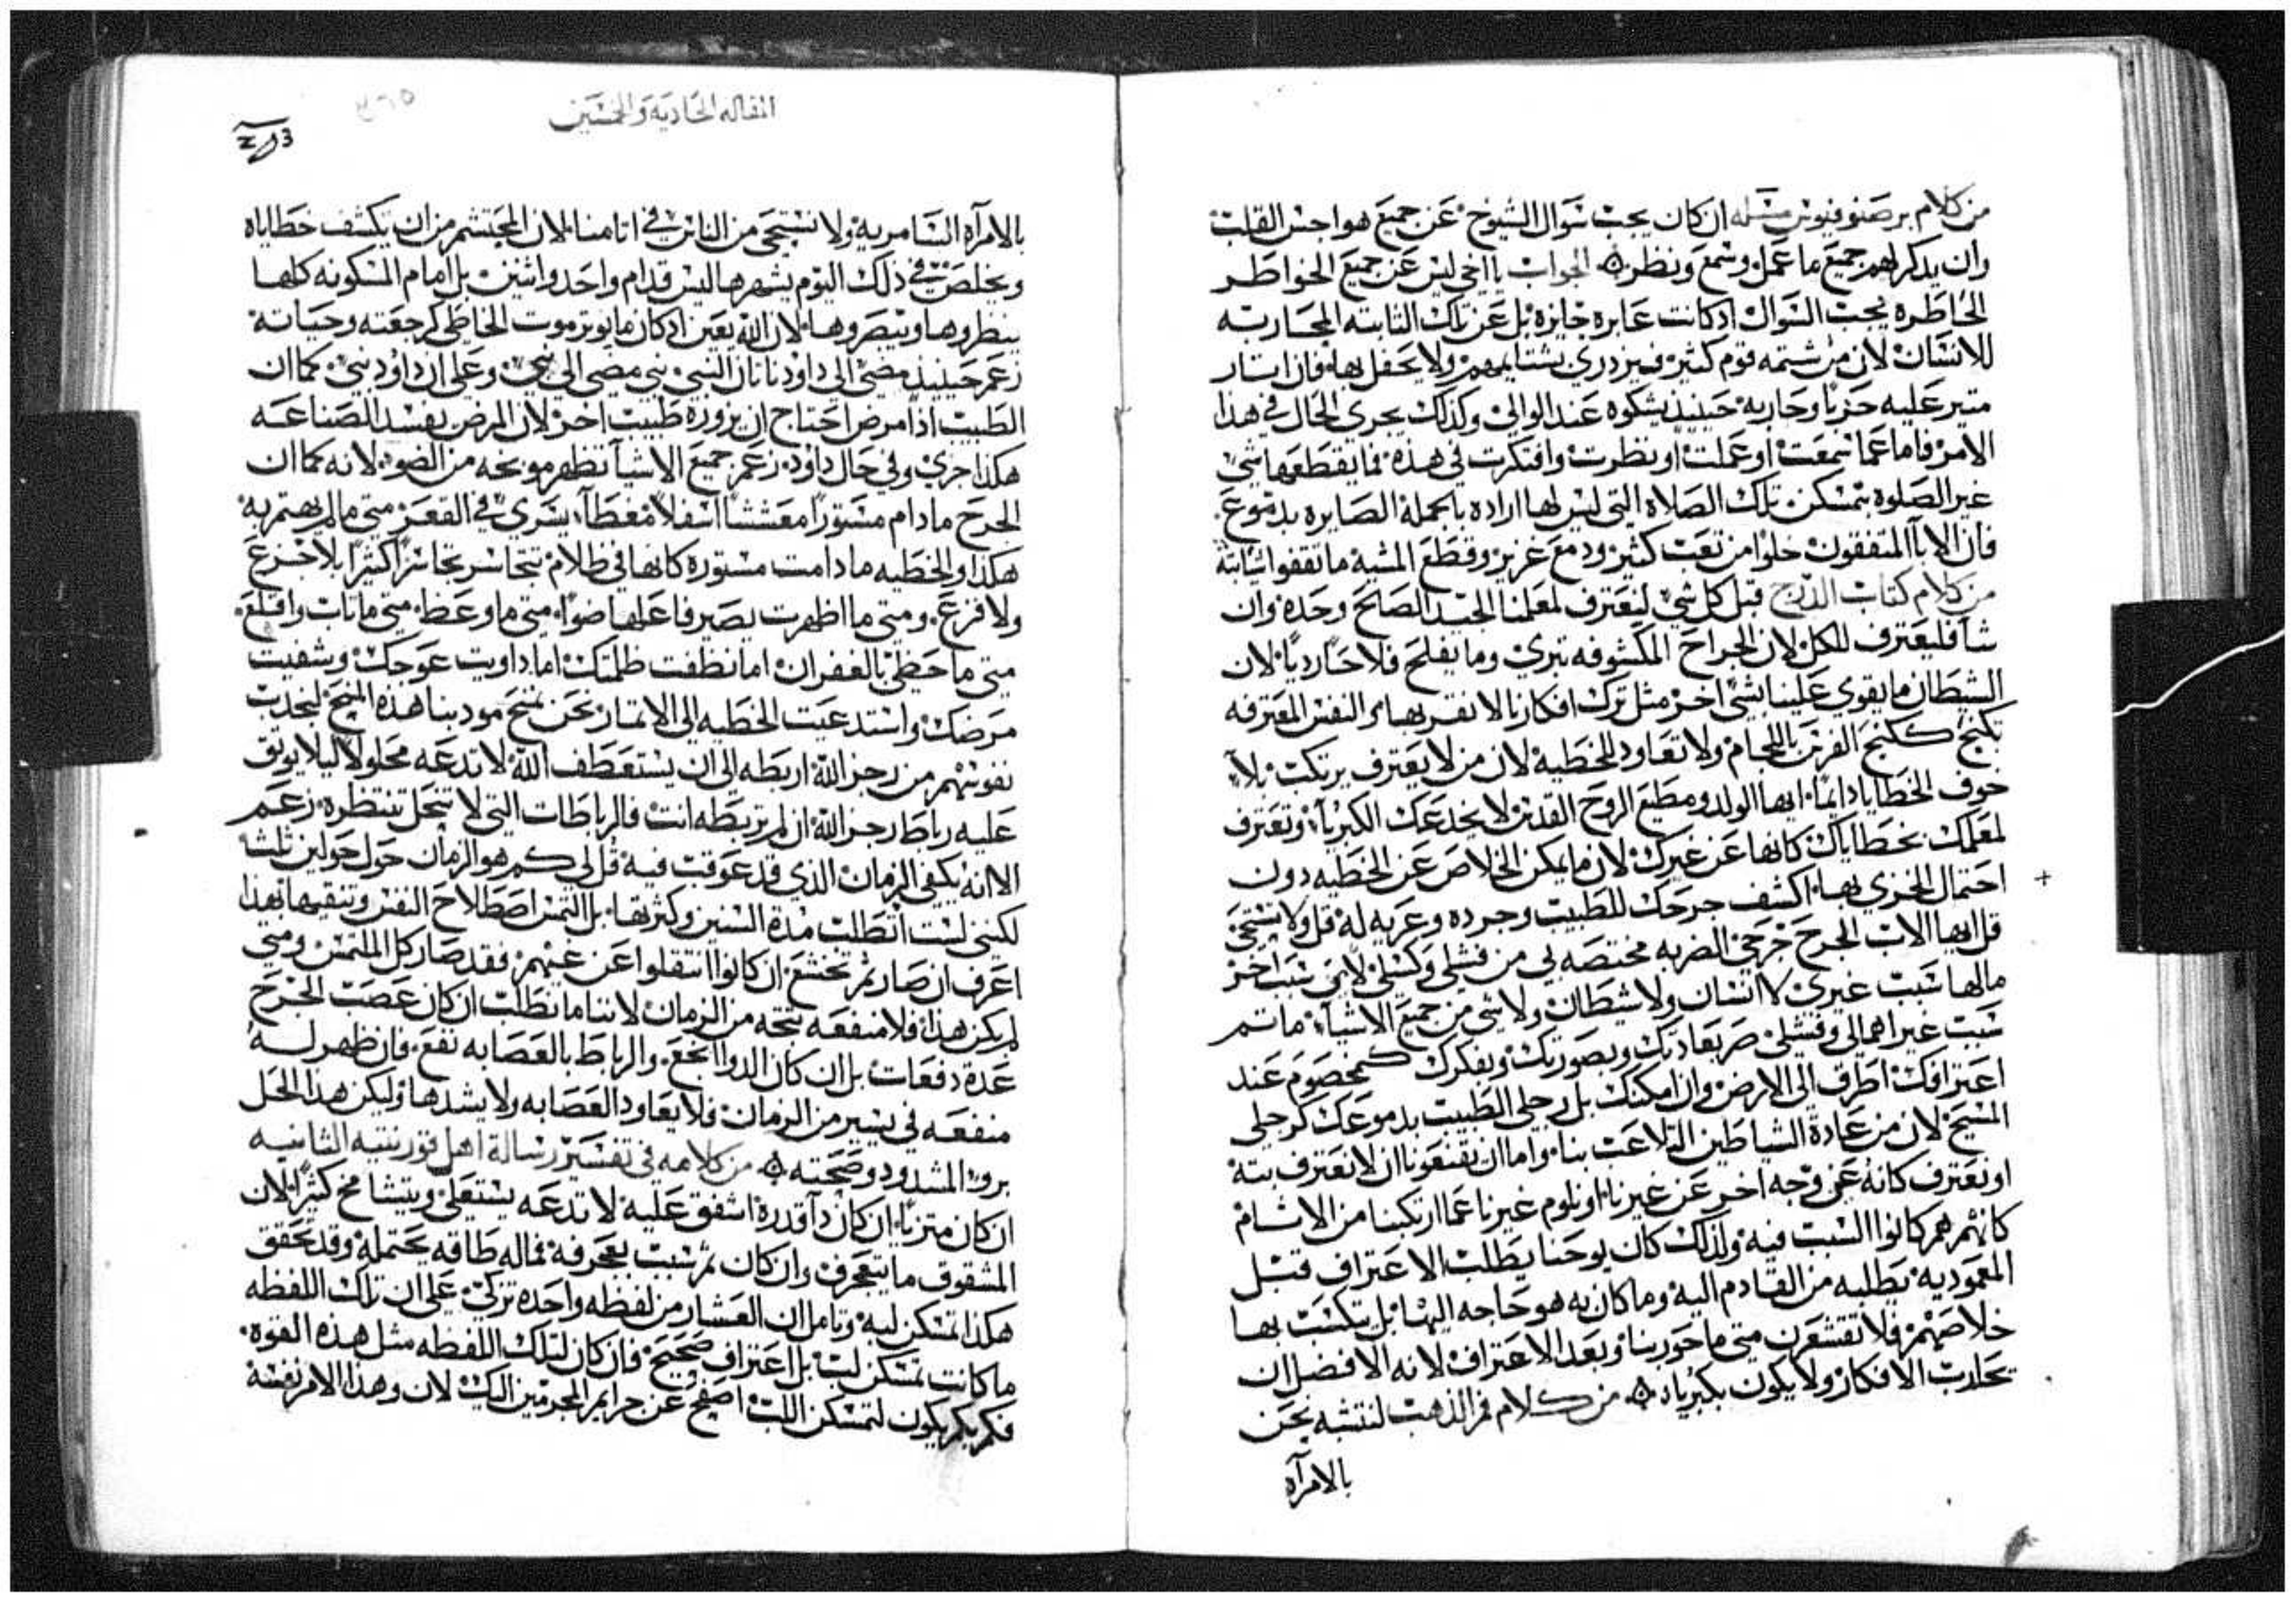 من كلام برصنوفيوس مسئله ان كان يجب سَوال الشيوخ عَن جميعَ هواجس القلب
وان يدكر لهم جميعَ ما عَمل وسمعَ ونظر الجواب يااخي ليس عَن جميعَ الخواطر
الخاطره يجب السَوال ادكانت عَابره جايزه بل عَن تلك الثابته المحَاربه
للانسَان لان من شتمه قوم كثير فيزدري بشتايمهم ولا يحَفل بها فان استار
عليه حَزبا وحاربه حينيذ يشكوه عَند الوالي وكذلك يجرى الحَال في هذا
الامر فاما عَما سمعَت اوعَملت اونظرت وافتكرت في هذه فما يقطعَها شي
غير الصَلوه تمسكن تلك الصَلاه التي ليس لها اراده بالجمله الصَايره بدموعَ
فان الابا المتفقون خلوا من تعَب كثير ودمعَ غزير وقطعَ المشيه ما تقفوا ثباته
من كلام كتاب الدرج قبل كل شي لنعَترف لمعَلمنا الجيد الصَالحَ وحَده وان
شا فليعَترف للكل لان الجراحَ المكشوفه تبرى وما
الشيطان مايقوي عَلينا بشي اخر مثل ترك افكارنا لا نقر بها والنفس المعَترفه
تكبح ككبح الفرس باللجام ولا تعَاود للخطيه لان من لايعَترف يرتكب بلا
خوف الخطايا دايما ايها الولد ومطيعَ الروحَ القدس لا يخدعَك الكبريا وتعَترف
لمعَلمك بخطاياك كانها عَن غيرك لان مايمكن الخلاصَ عَن الخطيه دون
احتمال الخزي بها اكشف جرحَك للطبيب وجرده وعَريه له قل ولا تستحَي
قل ايها الاب الجرحَ جرحي الضربه مختصه بي من فشلي وكسَلي لا من سَبب اخر
مالها سَبب غيري لاانسَان ولاشيطان ولاشي من جميعَ الاشيا ماتم
سَبب غير اهمالي وفشلي صر بعَادتك وبصورتك وبفكرك كمخصَوم عَند
اعَترافك اطرق الى الارض وان امكنك بل رجلي الطبيب بدموعَك كرجلي
المسَيحَ لان من عَادة الشياطين التلاعَب بنا واما ان تقنعَونا ان لانعَترف بته
اونعَترف كانه عَن وجه اخر عَن غيرنا اونلوم غيرنا عَما ارتكبنا من الاثام
كانهم هم كانوا السَبب فيه ولذلك كان يوحنا يطلب الاعَتراف قبل
المعَموديه يطلبه من القادم اليه وما كان به هو حَاجه اليها بل يتكسب بها
خلاصَهم فلا تقشعَرن متى ماحوربنا وبعَد الاعَتراف لانه الافضل ان
تحَارب الافكار ولا يكون بكبرياد من كلام فم الذهب لنتشبه نحَن
بالامرآه
المقاله الحَاديه والخمسَين
بالامرآه السَامريه ولا نستحَي من الناس في اثامنا لان المحتشم من ان يكشف خطاياه
ويخلصَ في ذلك اليوم يشهرها ليس قدام واحَد واثنين بل امام المسَكونه كلها
ينظروها ويبصَروها لان الله بعَين ادكان مايوثر موت الخاطي كرجعَته وحيَاته
زعَم حينيذ مضى الي داود ناتان النبي نبي مضى الى نبي وعَلى ان داود نبي كماان
الطبيب اذا مرض احتاج ان يزوره طبيب اخر لان المرض يفسد الصَناعَه
هكذا جرى وفي حَال داود زعَم جميعَ الاشيا تظهر موبخه من الضو لانه كماان
الجرحَ مادام مسَتورا معَششا اسَفلا مغطا يسَري في القعَر متى مالم يهتم به
هكذا والخطيه مادامت مسَتوره كانها في ظلام تتجاسَر تجاسَرا كثيرا بلاجزعَ
ولا فزعَ ومتى مااظهرت يصَير فاعَلها ضوا متى ماوعَظ متى ماتاب واقلعَ
متى ماحَظي بالغفران امانظفت ظلمتك اماداويت عَوجك وشفيت
مرضك واسَتدعَيت الخطيه الى الاتمار نحَن نمنحَ مودبنا هذه المنح لنجدب
نفوسَهم من رجز الله اربطه الى ان يستعَطف الله لا تدعَه محَلولا ليلا يوثق
عَليه رباط رجز الله ان لم تربطه انت فالرباطات التي لا تنحَل تنتظره زعَم
الاانه يكفي الزمان الذي قد عَوقب فيه قل لي كم هو الزمان حَول حَولين ثلثا
لكنني لسَت اتطلب مدة السَنين وكثرتها بل التمس اصَطلاحَ النفس وتنقيها بهذا
اعَرف ان صَار ثم تخشعَ ان كانوا انتقلوا عَن غيهم فقد صَار كل الملتمس ومتى
لم يكن هذا فلا منفعَه بتحه من الزمان لاننا مانطلب ان كان عَصَب الجرحَ
عَدة دفعَات بل ان كان الدوا انجعَ والرباط بالعَصَابه نفعَ فان ظهر له
منفعَه في يسَير من الزمان فلايعَاود العَصَابه ولايشدها وليكن هذا الحَل
برو المشدود وصَحته من كلامه في تفسَير رسَالة اهل قورنتيه الثانيه
ان كان متزنا ان كان دآقدره اشفق عَليه لا تدعَه يستعَلي ويتشامخ كثيرا لان
المشقوق مايتعَجرف وان كان ثم سَبب بعَجرفه فماله طاقه يحَتمله وقد تحَقق
هكذا تمسكن لبه وتامل ان العَشار من لفظه واحَده تزكى عَلى ان تلك اللفظه
ماكانت تمسكن لب بل اعَتراف صَحيحَ فان كان لتلك اللفظه مثل هذه القوه
فكم بكم يكون لتمسكن اللب اصفحَ عَن جرايم المجرمين اليك لان وهذا الامر نفسَه